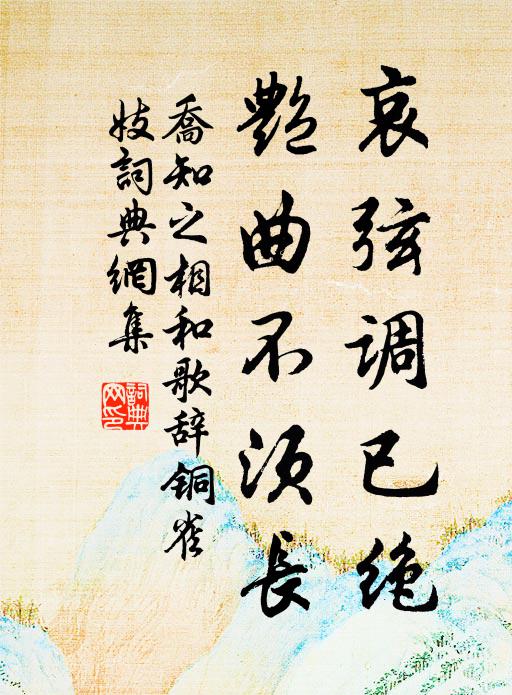 哀弦调已绝
艳曲不须長
喬知之相和歌辞铜雀
妓詞典網集
詞典网印